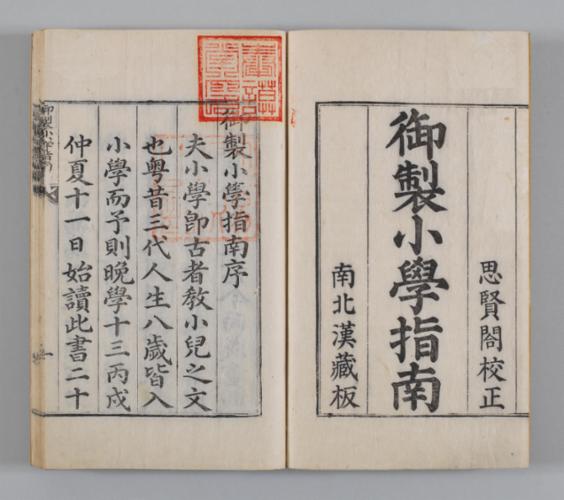 思賢閤校正
御製小學指南
南北漢藏板
御製小學指南序
夫小學卽古者敎小兒之文
也粤昔三代人生八歲皆入
小學而予則晚學十三丙戌
仲夏十一日始讀此書二十